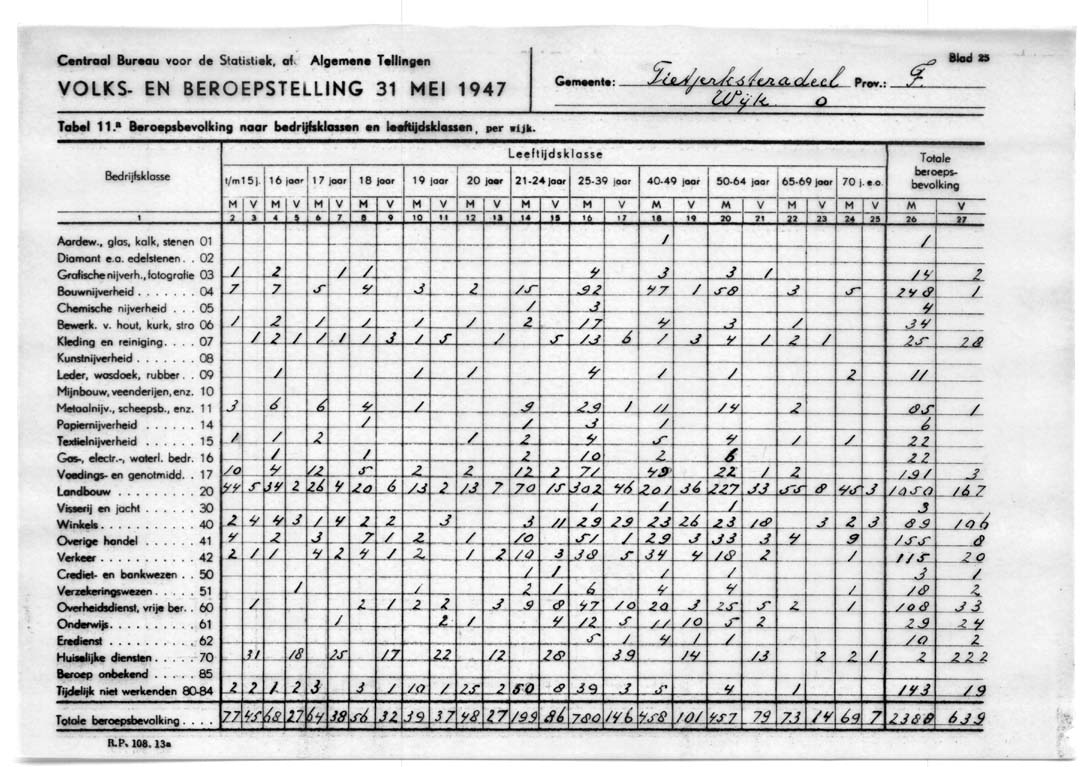 Centraal Bureau voor de Statistiek, af. Algemene Tellingen
Blad 25
VOLKS- EN BEROEPSTELLING 31 MEI 1947
Gemeente: Tietjerksteradeel Prov.: F.
Wijk O
Tabel 11.a Beroepsbevolking naar bedrijfsklassen en leeftijdsklassen, per wijk.
Bedrijfsklasse Leeftijdsklasse Totale beroeps- bevolking
t/m 15 j. 16 jaar 17 jaar 18 jaar 19 jaar 20 jaar 21-24 jaar 25-39 jaar 40-49 jaar 50-64 jaar 65-69 jaar 70 j. e.o.
M V M V M V M V M V M V M V M V M V M V M V M V M V
1 2 3 4 5 6 7 8 9 10 11 12 13 14 15 16 17 18 19 20 21 22 23 24 25 26 27
Aardew., glas, kalk, stenen 01 1 1
Diamant e.a. edelstenen . . 02
Grafische nijverh., fotografie 03 1 2 1 1 4 3 3 1 14 2
Bouwnijverheid . . . . . . . 04 7 7 5 4 3 2 15 92 47 1 58 3 5 248 1
Chemische nijverheid . . . 05 1 3 4
Bewerk. v. hout, kurk, stro 06 1 2 1 1 1 1 2 17 4 3 1 34
Kleding en reiniging. . . . 07 1 2 1 1 1 1 3 1 5 1 5 13 6 1 3 4 1 2 1 25 28
Kunstnijverheid . . . . . . . 08
Leder, wasdoek, rubber. . 09 1 1 1 4 1 1 2 11
Mijnbouw, veenderijen, enz. 10
Metaalnijv., scheepsb., enz. 11 3 6 6 4 1 9 29 1 11 14 2 85 1
Papiernijverheid . . . . . . 14 1 1 3 1 6
Textielnijverheid . . . . . . 15 1 1 2 1 2 4 5 4 1 1 22
Gas-, electr.-, waterl. bedr. 16 1 1 2 10 2 6 22
Voedings- en genotmidd. . 17 10 4 12 5 2 2 12 2 71 49 22 1 2 191 3
Landbouw . . . . . . . . . . 20 44 5 34 2 26 4 20 6 13 2 13 7 70 15 302 46 201 36 227 33 55 8 45 3 1050 167
Visserij en jacht . . . . . . 30 1 1 1 3
Winkels. . . . . . . . . . . . 40 2 4 4 3 1 4 2 2 3 3 11 29 29 23 26 23 18 3 2 3 89 106
Overige handel . . . . . . . 41 4 2 3 7 1 2 10 51 1 29 3 33 3 4 9 155 8
Verkeer . . . . . . . . . . . 42 2 1 1 4 2 4 1 2 1 2 10 3 38 5 34 4 18 2 1 115 20
Crediet- en bankwezen . . 50 1 1 1 1 3 1
Verzekeringswezen . . . . . 51 1 1 2 1 6 4 4 1 18 2
Overheidsdienst, vrije ber. . 60 1 2 1 2 2 3 9 8 47 10 20 3 25 5 2 1 108 33
Onderwijs. . . . . . . . . . . 61 1 2 1 4 12 5 11 10 5 2 29 24
Eredienst . . . . . . . . . . . 62 5 1 4 1 1 10 2
Huiselijke diensten . . . . . 70 31 18 25 17 22 12 28 39 14 13 2 2 1 2 222
Beroep onbekend . . . . . . 85
Tijdelijk niet werkenden 80-84 2 2 1 2 3 3 1 10 1 25 2 50 8 39 3 5 4 1 143 19
Totale beroepsbevolking . . . . 77 45 68 27 64 38 56 32 39 37 48 27 199 86 780 146 458 101 457 79 73 14 69 7 2388 639
R.P. 108. 13a